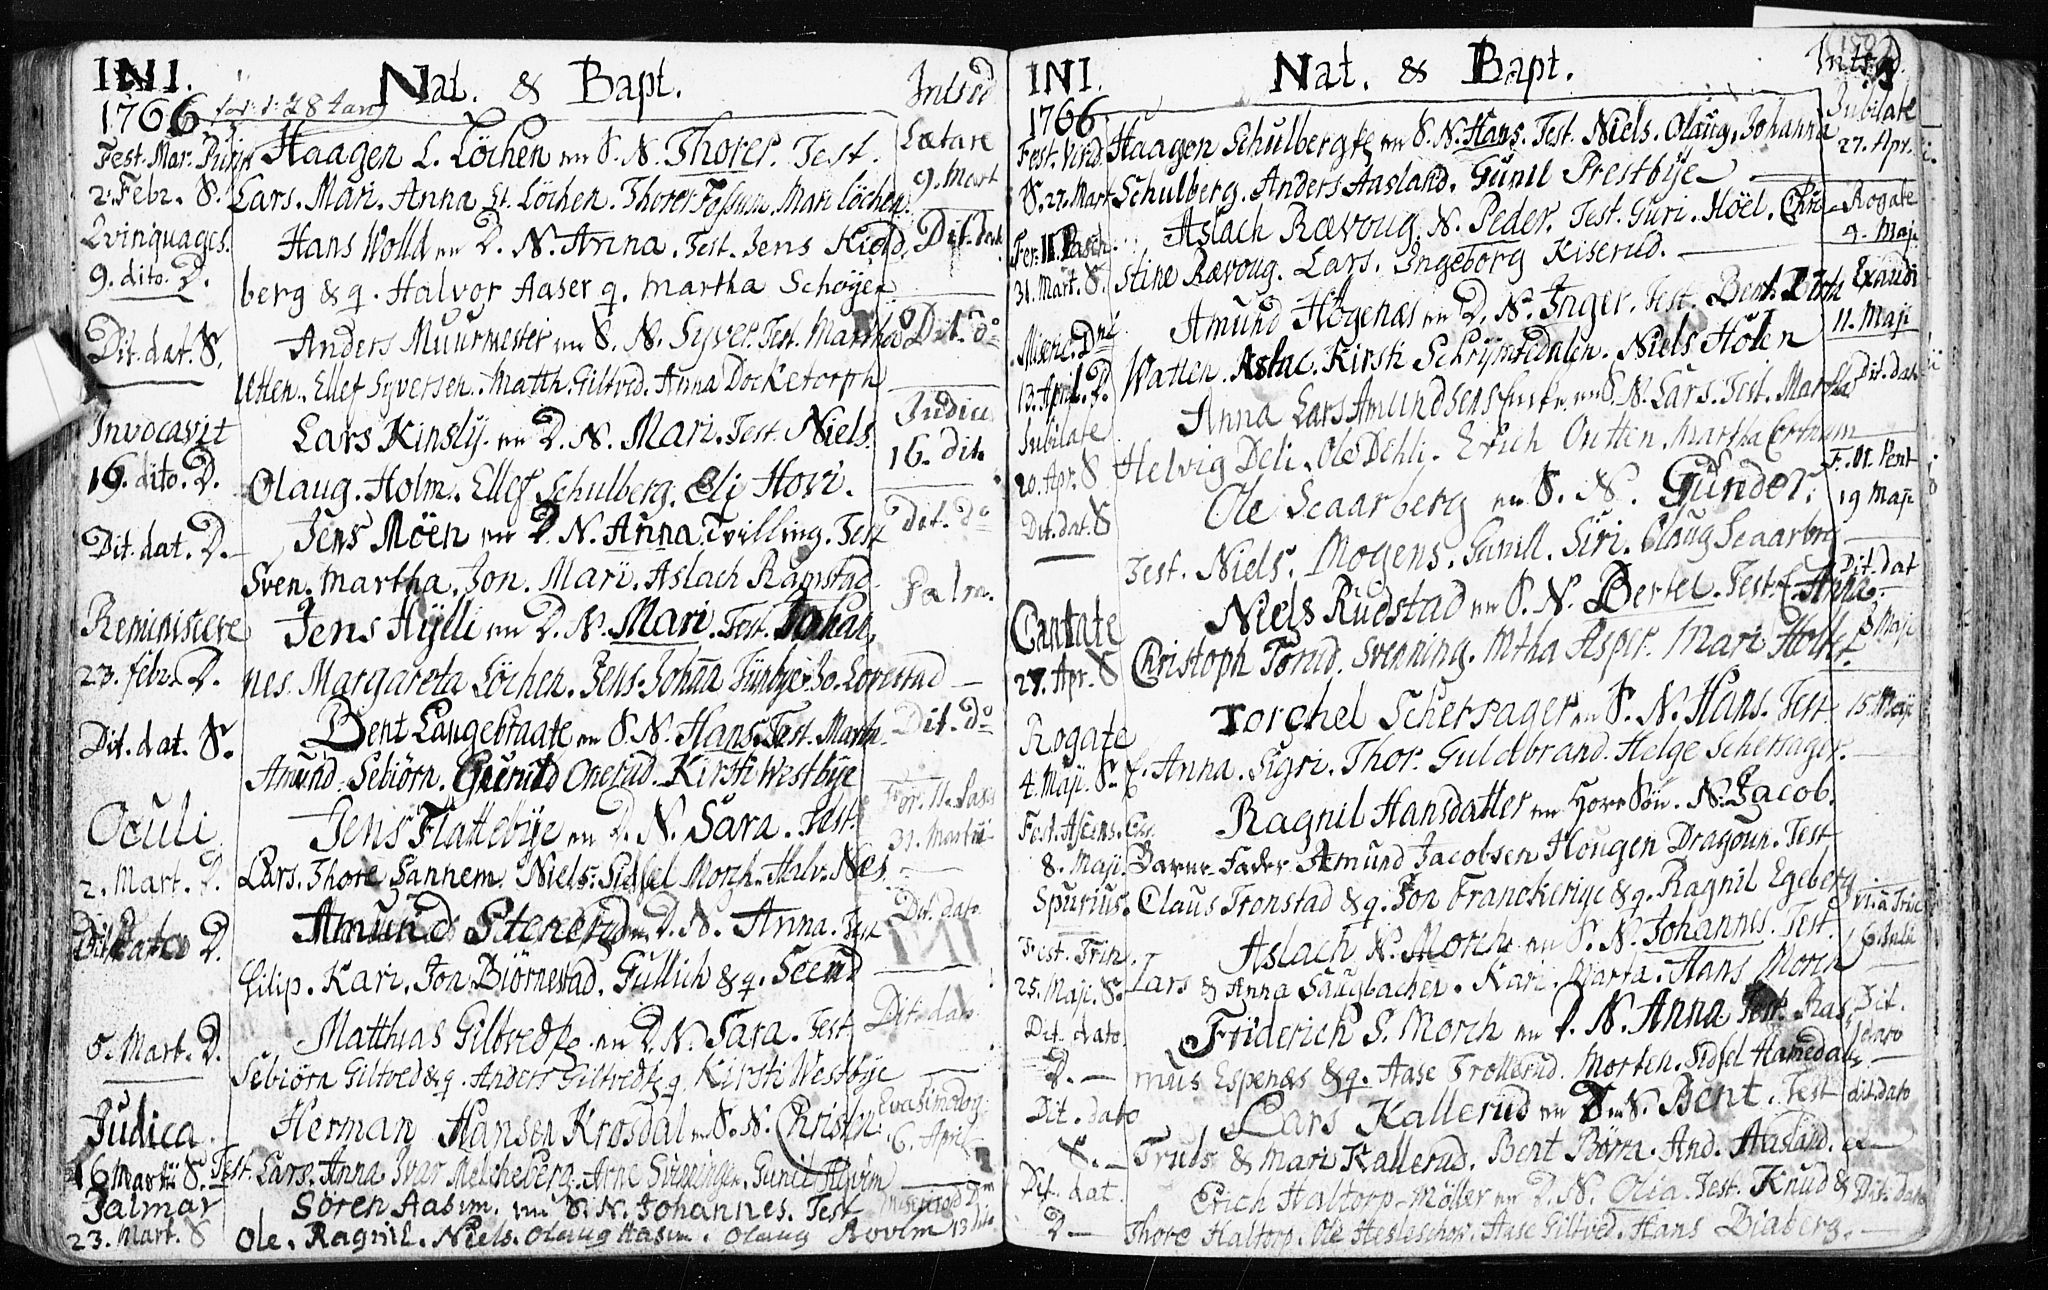 INI. Nat. & Bapt. Introd
1766
Fest. Mar. Purif Haagen L. Löchen en S. N. Thorer. Test. Lætare
2. Febr. S. Lars. Mari. Anna L. Löchen. Thorer Fossum. Mari Löchen. 9. Mart
Qvinquages. Hans Wolld en D. N. Anna. Test. Jens Kiold Dit. dat.
9. dito. D. berg & q. Halvor Aaser q. Martha Schøyen
Dit. dat. S. Anders Muurmester en S. N. Syver. Test. Martha Dit. do
Utten. Ellef Syversen. Matth. Giltved. Anna Docketorph
Invocavit Lars Kinsly en D. N. Mari. Test. Niels. Judica
16. dito. D. Olaug. Holm. Ellef Schulberg. Eli Hovi. 16. dito
Dit. dat. D. Jens Möen en D. N. Anna Tvilling. Test Dit. do
Sven. Martha. Jon. Mari. Aslach Ramstad
Reminiscere Jens Hylli en D. N. Mari. Test. Johan Palm.
23. febr. D. nes. Margareta Löchen. Jens. Johan
Dit. dat. S. Bent Langebraate en S. N. Hans. Test. Marth. Dit. do
Amund. Sebiörn. Gunild Onerud. Kirsti Westbye
Oculi Jens Flattebye en D. N. Sara. Test. Fer. II. Pasc
2. Mart. D. Lars. Thore Sannem. Niels. Sidsel Morch. Halv. Nes. 31. Martii
Dit. dato D. Amund Stenerud en D. N. Anna. Test Dit. dato
Filip. Kari. Jon Biörnestad. Gullich & q. Steend
5. Mart. D. Matthias Giltvedt en D. N. Sara. Test. Dit. dato
Sebiörn Giltved & q. Anders Giltvedt q. Kirsti Westbye
Judica. Herman Hansen Krosdal en S. N. Christen. Qvasimodog.
16 Martii S. Test. Lars. Anna Ivar Melcheberg. Arne Gunnil 6. April
Palmar Sören Aasim. en S. N. Johannes. Test Misericord D
23. Mart. S Ole. Ragnil. Niels. Olaug Hasim. Olaug 13 dito
INI. Nat. & Bapt. Introd.
1766
Haagen Schulberg en S. N. Hans. Test. Niels. Olaug. Johanna Jubilate 27. Apr.
S. 27. Mart Schulberg. Anders Aasland. Gunil Prestbye
Fer. II. Pasch. Aslach Rævoug. N. Peder. Test. Guri. Höel. Chri- Rogate
31. Mart. S. stine Rævoug. Lars. Ingeborg Kiserud. 4. Maji
Miseric. Dni Amund Högenæs en D. N. Inger. Test. Bent. Exaudi
13. April. D. Watten. Aslac. Kirsti. Niels Holen 11. Maji
Jubilate Anna Lars Amundsens en S. N. Lars. Test. Martha Dit. dat
20. Apr. S Helvig Deli. Ole Dehli. Erich Outten. Martha
Dit. dat. S Ole Scaarberg en S. N. Gunder. F. II. Pent 19 Maji
Test. Niels. Mogens. Gunil. Siri. Olaug Scaarberg
Cantate Niels Rudstad en S. N. Bertel. Test. Anna. Dit. dat
27. Apr. S Christoph Torud. Svenning. Mtha Asper. Mari
Rogate Torchel Schersager en S. N. Hans. Test 15. Maji
4. Maji. S. Anna. Sigri. Thor. Guldbrand. Helge Schersager.
Fest. Ascens. Chr. Ragnil Hansdatter en Hore Søn. N. Jacob.
8. Maji. Barne Fader Amund Jacobsen Hougen Dragoun. Test
Spurius. Claus Tronstad & q. Jon Franckerige & q. Ragnil Egeberg VI. a Trin
Fest. Trin. Aslach N. Morch en S. N. Johannes. Test. 6 Julii
25. Maji. S. Lars & Anna Saugbachen. Kari. Marta. Hans Morch
Dit. dato. Friderich S. Morch en D. N. Anna Test. Ras, Dit. dato
D. mus Espenæs & q. Aase Trollerud. Morten. Sidsel
Dit. dato Lars Kallerud en S. N. Bent. Test dit. dato
S. Truls & Mari Kallerud. Bent Börra. And. Aasland.
Dit. dat. Erich Haltorp Möller en D. N. Olia. Test. Knud & Dit. dato
D. Thore Haltorp. Ole. Aase Giltved. Hans Biaberg.